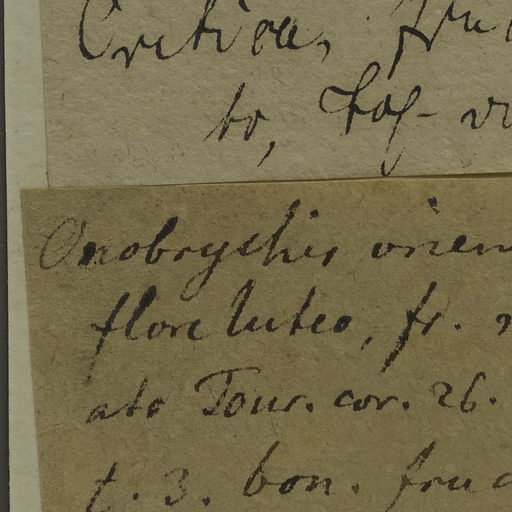 Cretica, fru
to,
Onobrychis orien
flore luteo, fr.
ato Tour. cor. 26.
t. 3. bon. fruc